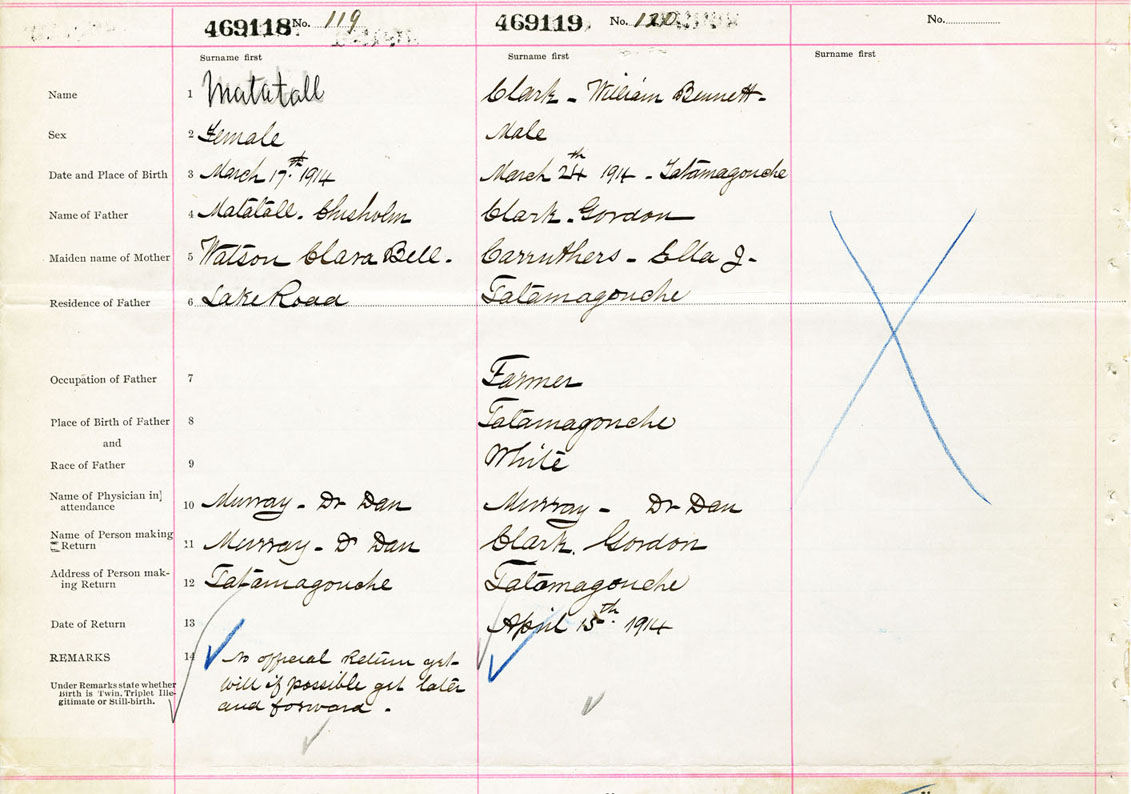 469118 No. 119 469119 No. 120 No.
Surname first Surname first Surname first
Name 1 Matatall Clark - William Bennett -
Sex 2 Female Male
Date and Place of Birth 3 March 17th 1914 March 24th 1914 - Tatamagouche
Name of Father 4 Matatall. Chisholm Clark. Gordon
Maiden name of Mother 5 Watson Clara Bell. Carruthers - Ella J-
Residence of Father 6 Lake Road Tatamagouche
Occupation of Father 7 Farmer
Place of Birth of Father 8 Tatamagouche
and
Race of Father 9 White
Name of Physician in}
attendance 10 Murray - Dr Dan Murray - Dr Dan
Name of Person making
Return 11 Murray - Dr Dan Clark. Gordon
Address of Person mak-
ing Return 12 Tatamagouche Tatamagouche
Date of Return 13 April 15th 1914
REMARKS 14 No official Return yet
Under Remarks state whether
Birth is Twin, Triplet Ille-
gitimate or Still-birth.
will if possible get later
and forward.